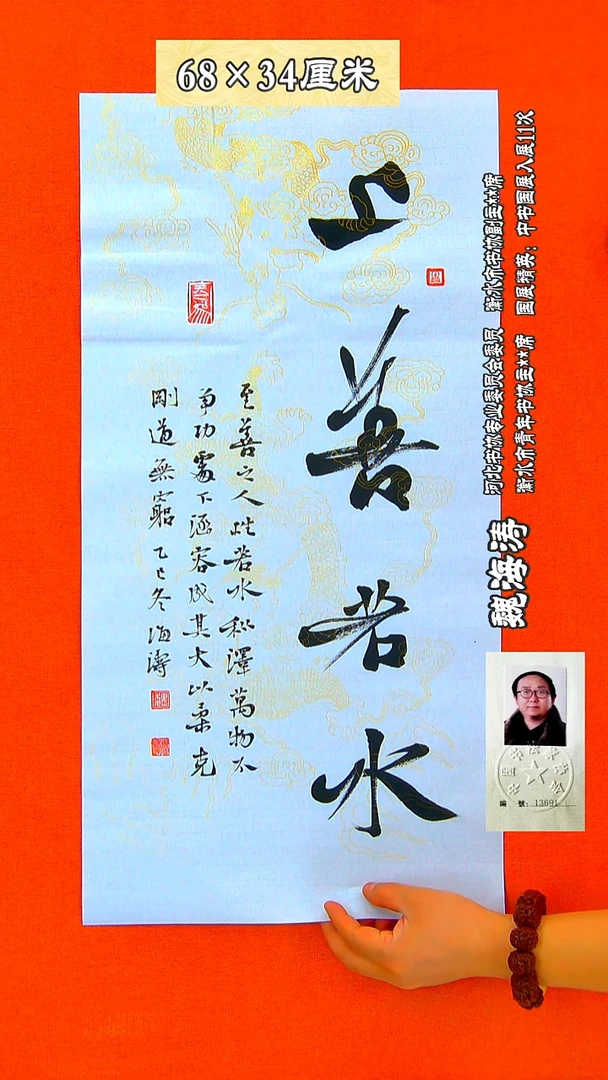 68×34厘米
上善若水
至善之人性若水利澤萬物不
爭功處下涵容成其大以柔克
剛道無窮 乙巳冬海濤
河北书协专业委员会委员 衡水市书协副主**席
衡水市青年书协主**席 国展精英：中书国展入展11次
魏海涛
编 號：13691